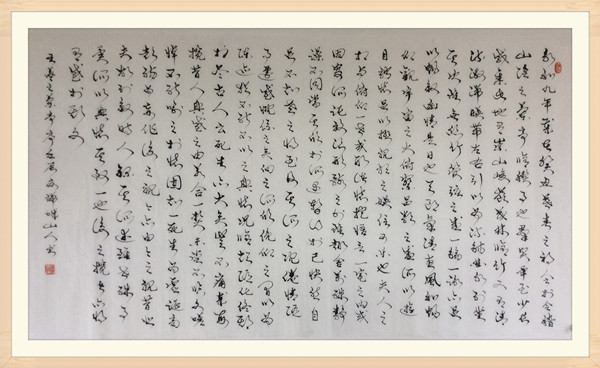 永和九年歲在癸丑暮春之初會於會稽
山陰之蘭亭脩禊事也群賢畢至少長
咸集此地有崇山峻領茂林脩竹又有清
流激湍暎帶左右引以為流觴曲水列坐
其次雖無絲竹管弦之盛一觴一詠亦足
以暢敘幽情是日也天朗氣清惠風和暢
仰觀宇宙之大俯察品類之盛所以遊
目騁懷足以極視聽之娛信可樂也夫人之
相與俯仰一世或取諸懷抱悟言一室之內或
因寄所託放浪形骸之外雖趣舍萬殊靜
躁不同當其欣於所遇暫得於己快然自
足不知老之將至及其所之既倦情隨
事遷感慨係之矣向之所欣俛仰之間以為
陳迹猶不能不以之興懷況脩短隨化終期
於盡古人云死生亦大矣豈不痛哉每
攬昔人興感之由若合一契未嘗不臨文嗟
悼不能喻之於懷固知一死生為虛誕齊
彭殤為妄作後之視今亦由今之視昔悲
夫故列敘時人錄其所述雖世殊事
異所以興懷其致一也後之攬者亦將
有感於斯文
王羲之蘭亭序 山人書